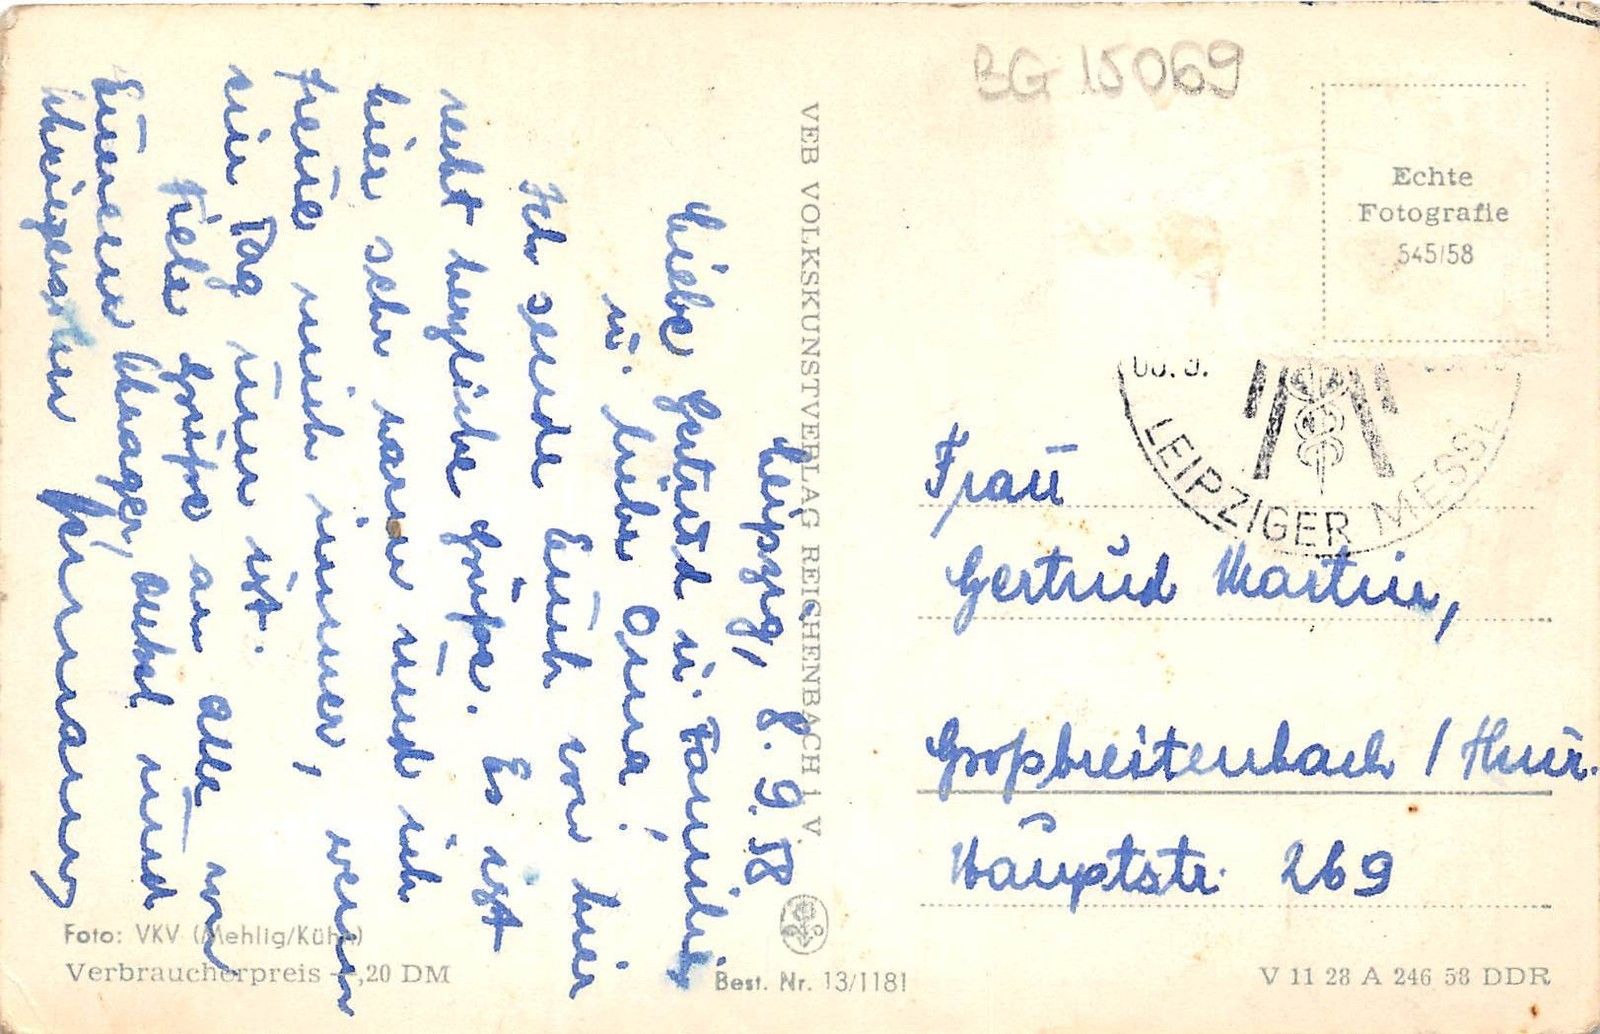 Leipzig, 8.9.58
Liebe Gertrud u. Familie
u. liebe Oma!
Ich sende Euch von hier
recht herzliche Grüße. Es ist
hier sehr warm und ich
freue mich immer, wenn
ein Tag rum ist.
Viele Grüße an Alle von
Eurem Schwager, Onkel und
Schwiegersohn Hermann
VEB VOLKSKUNSTVERLAG REICHENBACH I. V.
BG 15069
Echte
Fotografie
545/58
LEIPZIGER MESSE
Frau
Gertrud Martin,
Großbreitenbach / Thür.
Hauptstr. 269
Foto: VKV (Mehlig/Kühn)
Verbraucherpreis –,20 DM
Best. Nr. 13/1181
V 11 28 A 246 58 DDR